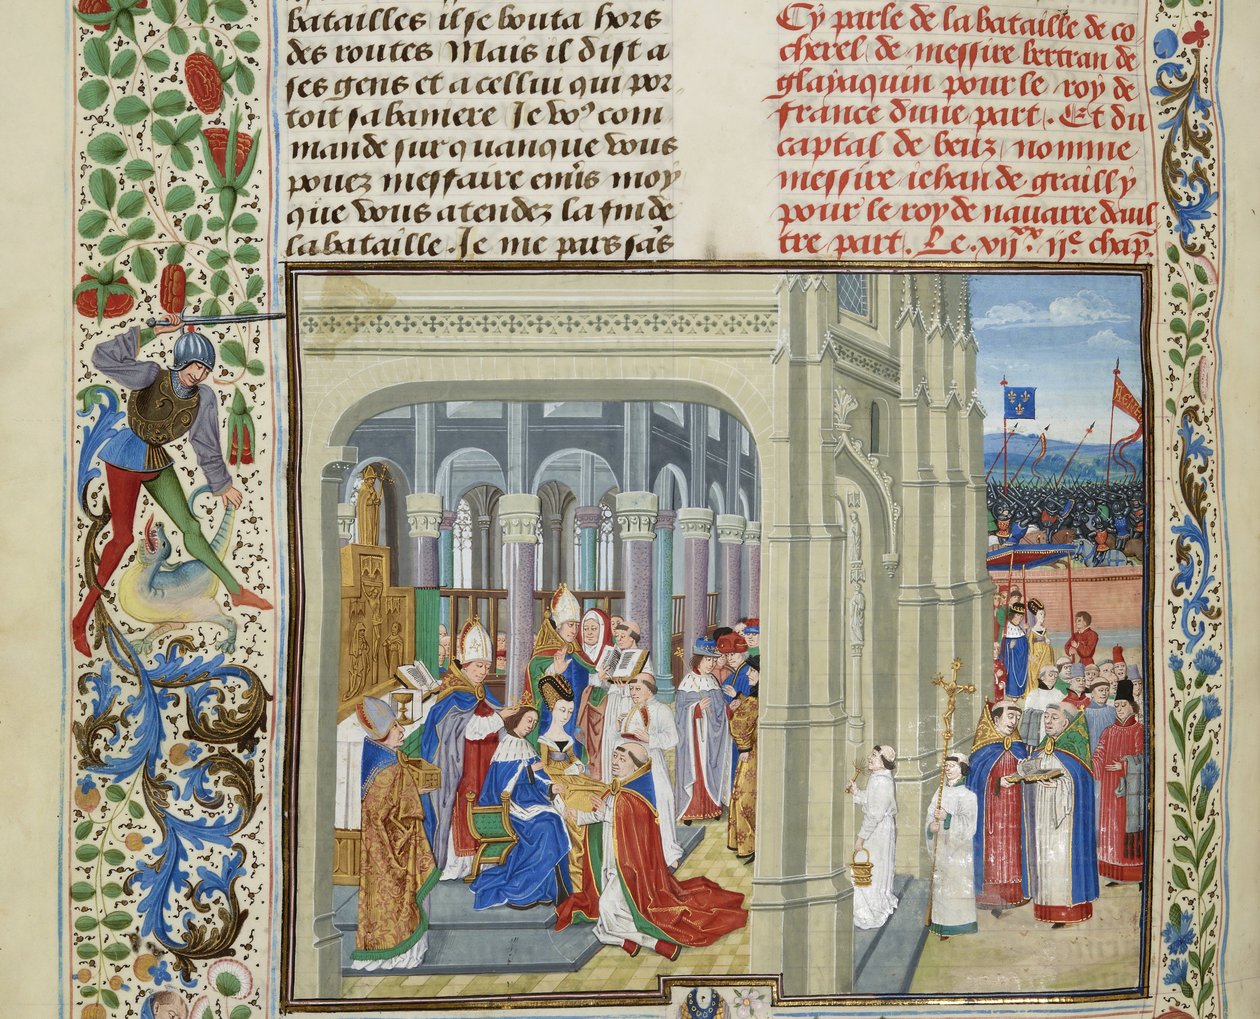 batailles il se bouta hors
des routes Mais il dist a
ses gens et a cellui qui por
toit sa baniere Je voꝰ com
mande sur quanque vous
pouez meffaire enuˢs moy
que vous atendez la fin de
la bataille. Je me puis sãs
Cy parle de la bataille de co
cherel de messire bertran de
glayaquin pour le roy de
france dune part. Et du
captal de beuz nomme
messire iehan de grailly
pour le roy de nauarre daul
tre part. Le .vijˣˣ.ijᵉ. chap̃.